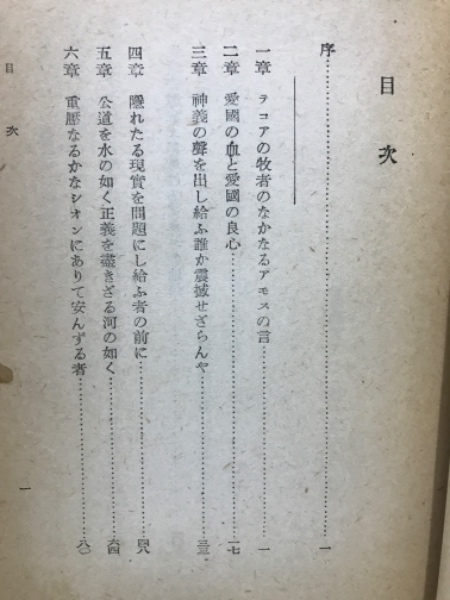 目次
序……一
一章 テコアの牧者のなかなるアモスの言……一
二章 愛國の血と愛國の良心……一七
三章 神義の聲を出し給ふ誰か震撼せざらんや……三三
四章 隱れたる現實を問題にし給ふ者の前に……四八
五章 公道を水の如く正義を盡きざる河の如く……六四
六章 重壓なるかなシオンにありて安んずる者……八〇
目次
一